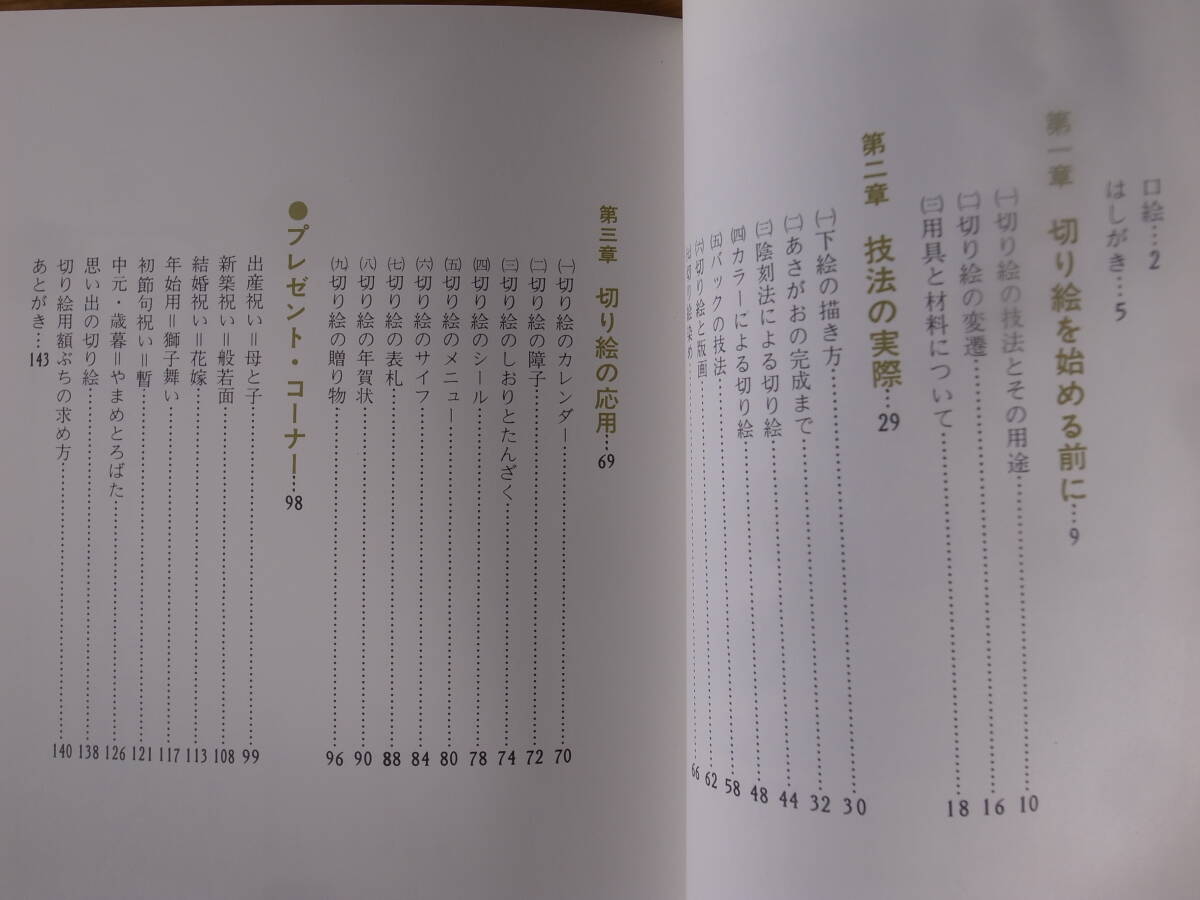 口絵…2
はしがき…5
第一章 切り絵を始める前に…9
㈠切り絵の技法とその用途……10
㈡切り絵の変遷……16
㈢用具と材料について……18
第二章 技法の実際…29
㈠下絵の描き方……30
㈡あさがおの完成まで……32
㈢陰刻法による切り絵……44
㈣カラーによる切り絵……48
㈤バックの技法……58
㈥切り絵と版画……62
㈦切り絵染め……66
第三章 切り絵の応用…69
㈠切り絵のカレンダー……70
㈡切り絵の障子……72
㈢切り絵のしおりとたんざく……74
㈣切り絵のシール……78
㈤切り絵のメニュー……80
㈥切り絵のサイフ……84
㈦切り絵の表札……88
㈧切り絵の年賀状……90
㈨切り絵の贈り物……96
●プレゼント・コーナー…98
出産祝い＝母と子……99
新築祝い＝般若面……108
結婚祝い＝花嫁……113
年始用＝獅子舞い……117
初節句祝い＝暫……121
中元・歳暮＝やまめとろばた……126
思い出の切り絵……138
切り絵用額ぶちの求め方……140
あとがき…143